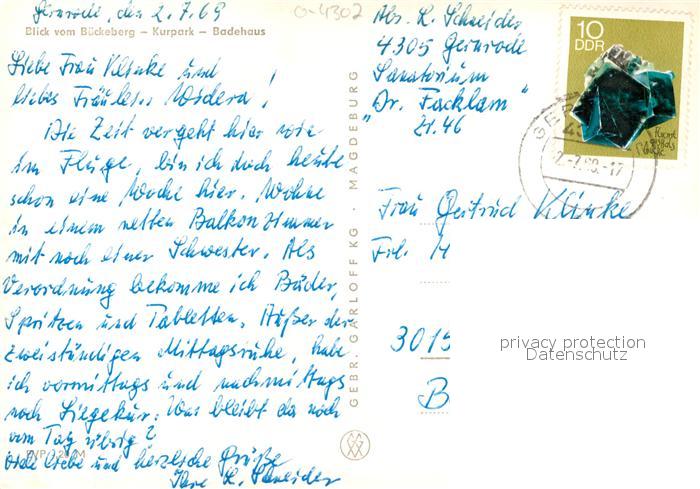 Gernrode, den 2.7.69
0-4302
Blick vom Bückeberg – Kurpark – Badehaus
Liebe Frau Klinke und
liebes Fräulein Widera!
Die Zeit vergeht hier wie
im Fluge, bin ich doch heute
schon eine Woche hier. Wohne
in einem netten Balkonzimmer
mit noch einer Schwester. Als
Verordnung bekomme ich Bäder,
Spritzen und Tabletten. Außer der
zweistündigen Mittagsruhe, habe
ich vormittags und nachmittags
noch Liegekur. Was bleibt da noch
vom Tag übrig?
viele liebe und herzliche Grüße
Ihre L. Schneider
GEBR. GARLOFF KG · MAGDEBURG
Abs. L. Schneider
4305 Gernrode
Sanatorium
"Dr. Facklam"
Zi. 46
10
DDR
Frau Gertrud Klinke
Frl. H
3015
B
privacy protection
Datenschutz